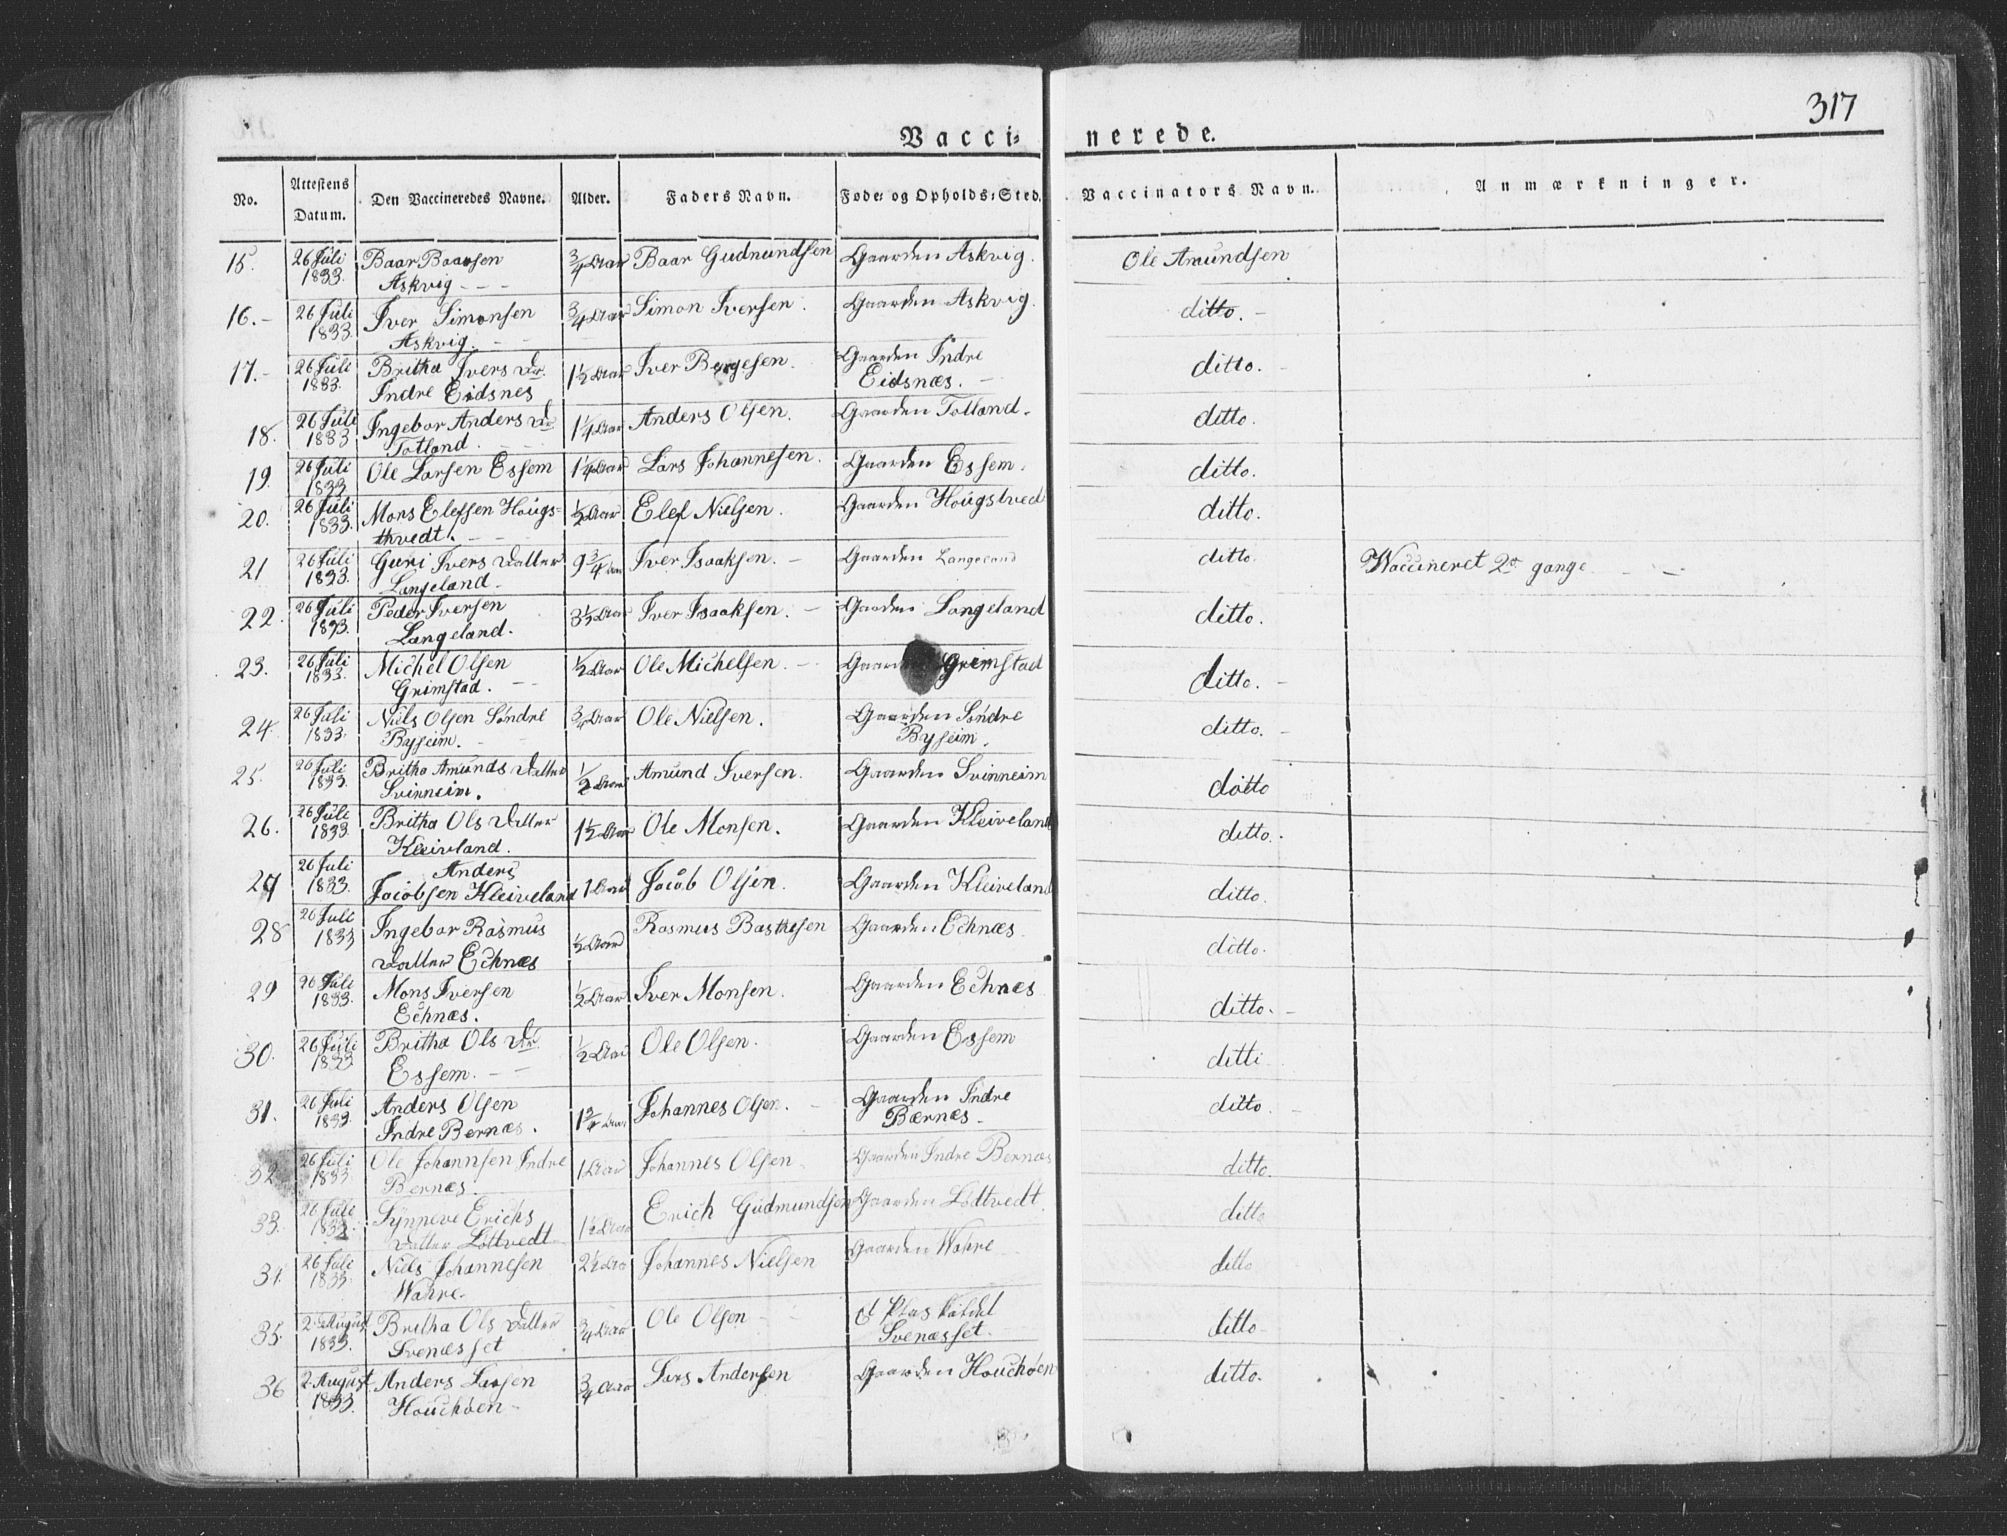 317
Vacci= nerede.
No. Attestens Datum. Den Vaccineredes Navne. Alder. Faders Navn. Føde= og Opholds=Sted. Vaccinators Navn. Anmærkninger.
15. 26 Juli 1833. Baar Baarsen Askvig - - - 3/4 Aar Baar Gudmundsen Gaarden Askvig. Ole Amundsen
16. - 26 Juli 1833. Iver Simonsen Askvig. - - 3/4 Aar Simon Iversen. Gaarden Askvig. ditto. -
17. - 26 Juli 1833. Britha Ivers Dr. Indre Eidsnes 1 1/2 Aar Iver Børgesen. Gaarden Indre Eidsnæs. - ditto.
18. 26 Juli 1833 Ingebor Anders Dr Totland. - - 1 1/4 Aar Anders Olsen. Gaarden Totland. ditto.
19. 26 Juli 1833 Ole Larsen Essem 1 1/4 Aar Lars Johannesen. Gaarden Essem. ditto.
20. 26 Juli 1833. Mons Elefsen Hougs= thvedt. - - 1/2 Aar Elef Nielsen. Gaarden Hougstved ditto.
21 26 Juli 1833. Guri Ivers Datter Langeland. 9 3/4 Aar Iver Isaaksen. - Gaarden Langeland ditto. Waccineret 2de gange - -
22. 26 Juli 1833. Peder Iversen Langeland. 3 1/2 Aar Iver Isaaksen. - Gaarden Langeland ditto.
23. 26 Juli 1833. Michel Olsen Grimstad. - - 1/2 Aar Ole Michelsen. - Gaarden Grimstad ditto. -
24. 26 Juli 1833. Niels Olsen Søndre Bysheim. - 3/4 Aar Ole Nielsen. Gaarden Søndre Byseim. ditto. -
25. 26 Juli 1833. Britha Amunds Datter Svinneim. 1/2 Aar Amund Iversen. Gaarden Svinneim ditto
26. 26 Juli 1833. Britha Ols Datter Kleiveland. 1 1/2 Aar Ole Monsen. Gaarden Kleiveland ditto.
27 26 Juli 1833. Anders Jacobsen Kleiveland 1 Aar Jacob Olsen. Gaarden Kleiveland ditto.
28 26 Juli 1833 Ingebor Rasmus Datter Echnæs 1/2 Aar Rasmus Basthesen Gaarden Echnæs ditto.
29 26 Juli 1833. Mons Iversen Echnæs. 1/2 Aar Iver Monsen. Gaarden Echnes ditto. -
30. 26 Juli 1833 Britha Ols Dr. Essem. - - 1/2 Aar Ole Olsen. Gaarden Essem ditti
31. 26 Juli 1833. Anders Olsen Indre Bernæs. 1 3/4 Aar Johannes Olsen. - Gaarden Indre Bærnæs. ditto. -
32 26 Juli 1833. Ole Johannsen Indre Bernæs. 1 Aar Johannes Olsen. Gaarden Indre Bernæs ditto.
33. 26 Juli 1833. Synneve Erichs Datter Løttvedt 1 1/2 Aar Erich Gudmundsen Gaarden Løttvedt. ditto
34. 26 Juli 1833. Niels Johannesen Wahre. 2 1/2 Aar Johannes Nielsen Gaarden Wahre ditto
35. 2 August 1833. Britha Ols Datter Svenæsset 3/4 Aar Ole Olsen Svenæsset. ditto
36 2 August 1833. Anders Larsen Houchøen 3/4 Aar Lars Andersen Gaarden Houchøen ditto.